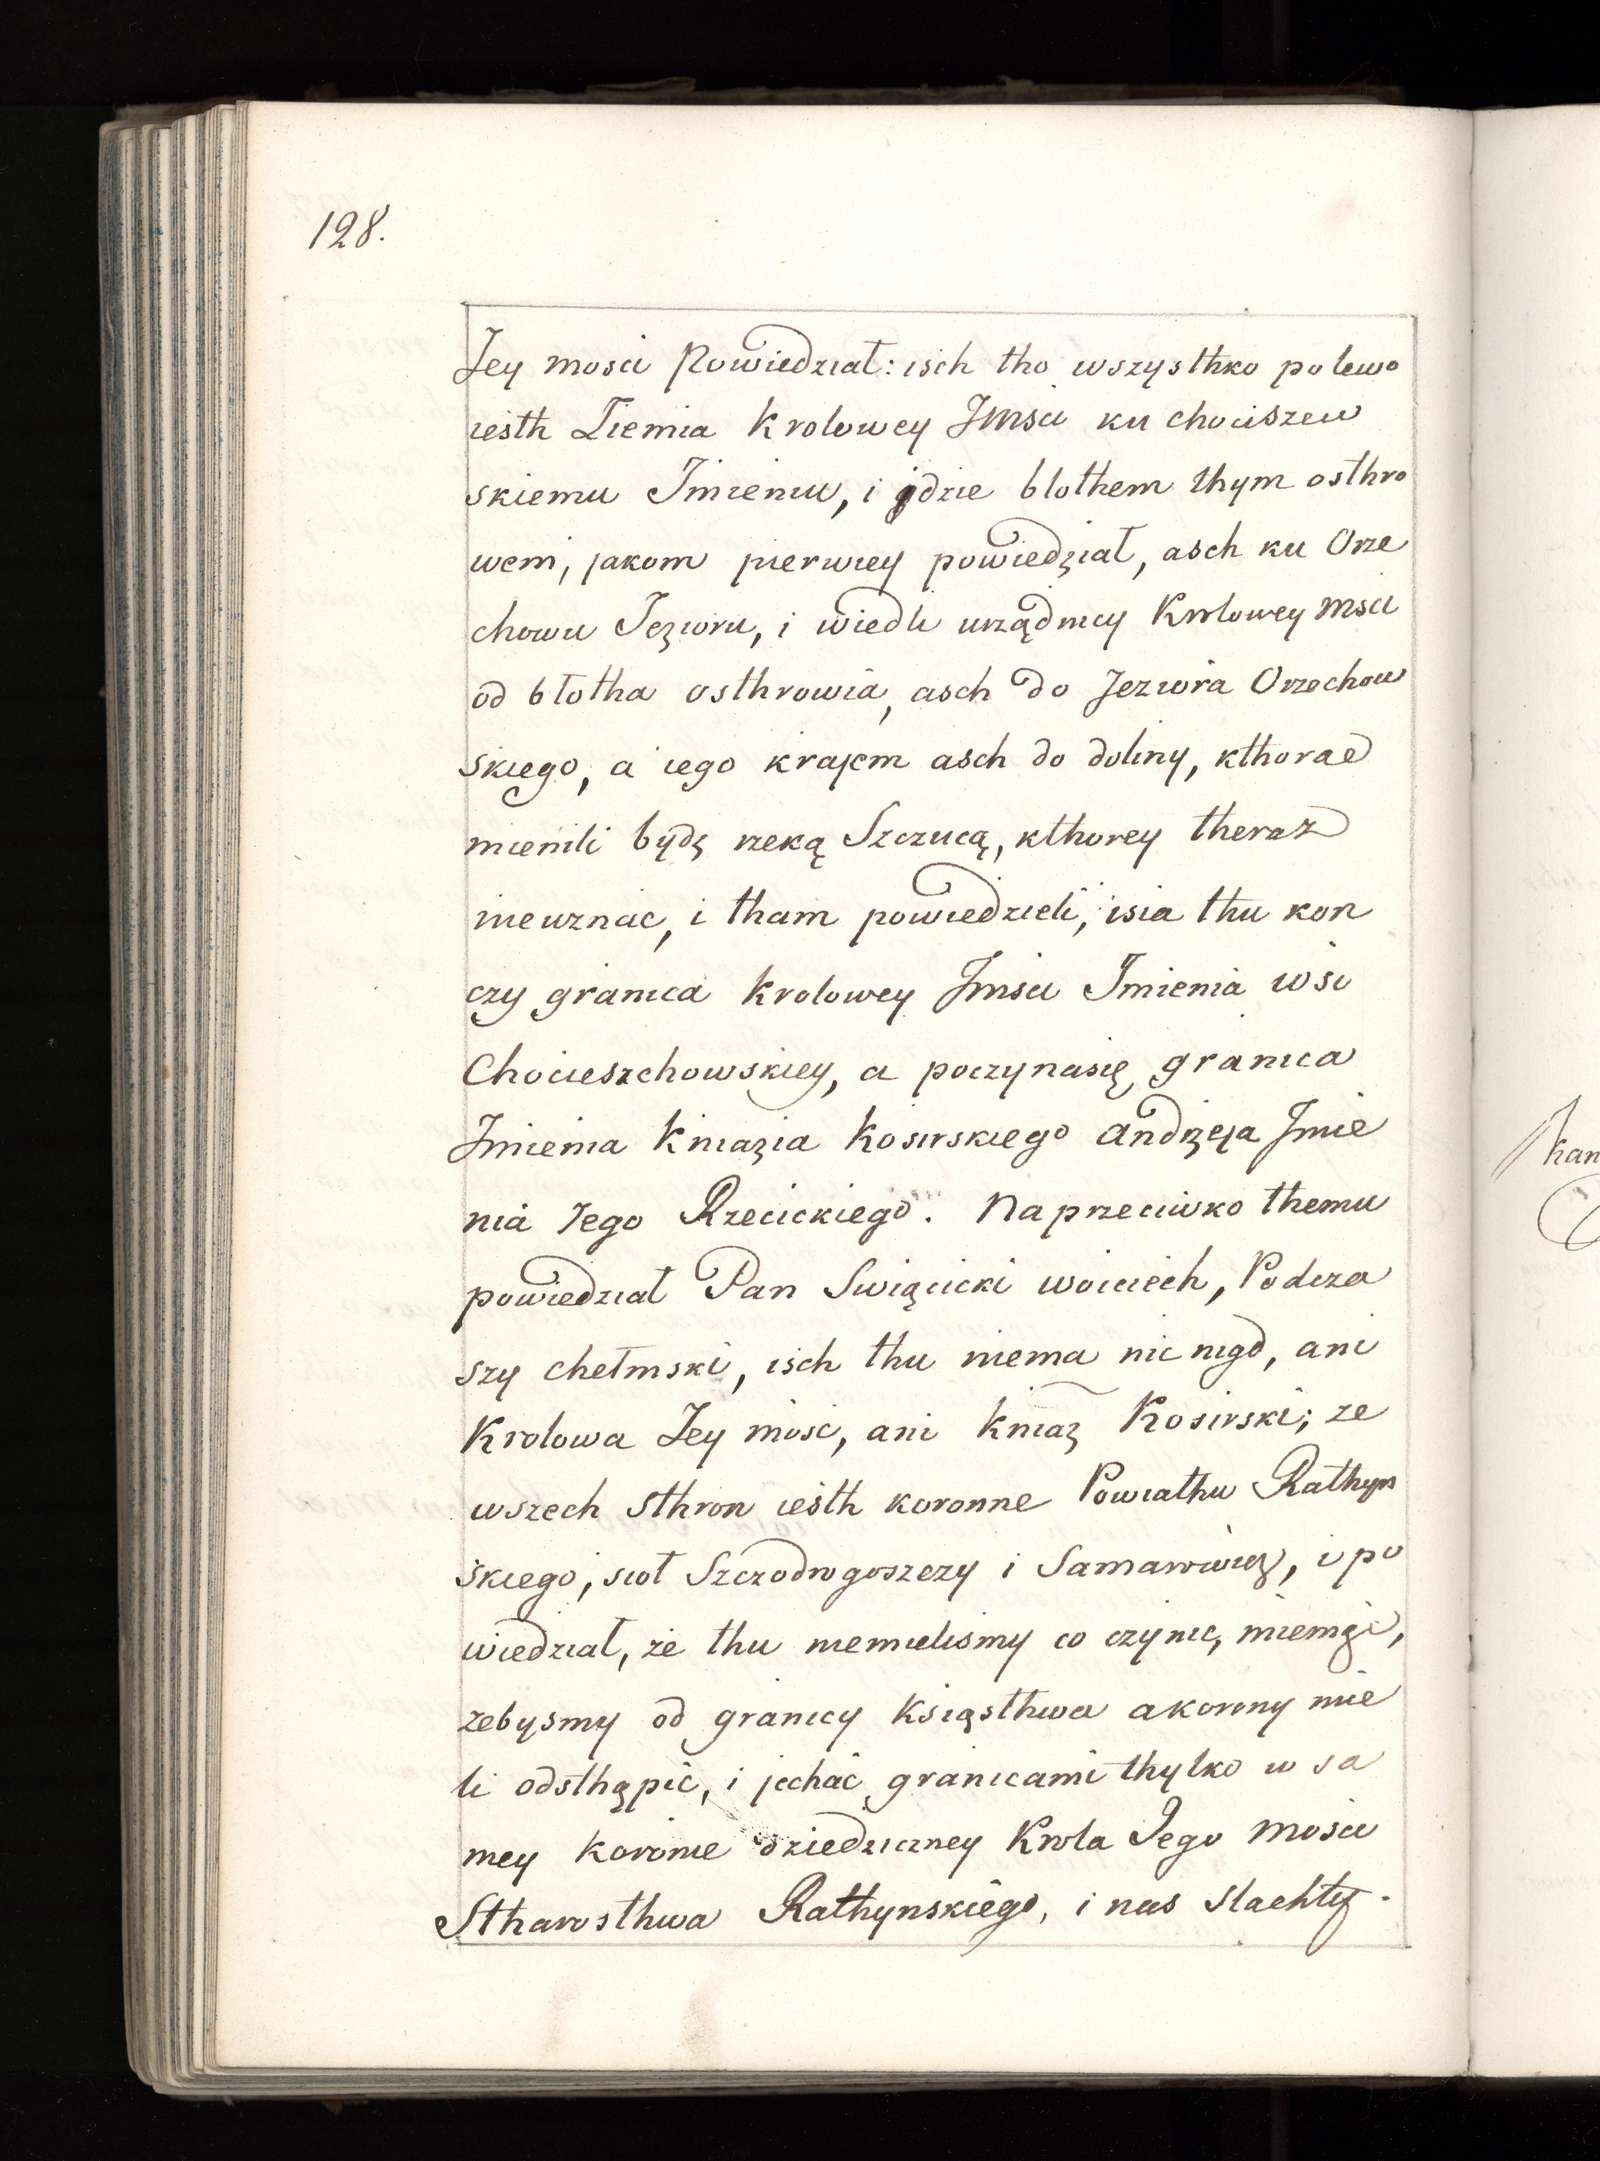 128.
Jey mosci Powiedział: isch tho wszysthko polewo
iesth Ziemia Krolowey Jmsci ku chociszew
skiemu Jmieniu, i jdzie blothem thym osthro
wem, jakom pierwiey powiedział, asch ku Orze
chowu Jezioru, i wiedli urządnicy Krolowey Msci
od błotha osthrowia, asch do Jeziora Orzechow
skiego, a iego krajem asch do doliny, kthorae
mienili bydź rzeką Szczucą, kthorey theraz
nieuznac, i tham powiedzieli, isia thu kon
czy granica Krolowey Jmsci Jmienia wsi
Chocieszchowskiey, a poczynasię granica
Jmienia Kniazia Kosirskiego Andrzeja Jmie
nia Jego Rzecickiego. Naprzeciwko themu
powiedział Pan Swięcicki woiciech, Podcza
szy chełmski, isch thu niema nic nigd, ani
Krolowa Jey mosc, ani kniaź Kosirski; ze
wszech sthron iesth koronne Powiathu Rathyn
skiego, sioł Szczodrogoszczy i Samarowicz, i po
wiedział, że thu niemielismy co czynić,
zebysmy od granicy Księsthwa a korony mie
li odsthąpić, i jechać granicami thylko w sa
mey koronie dziedziczney Krola Jego Mosci
Stharosthwa Rathynskiego, i nas slachty.
kan